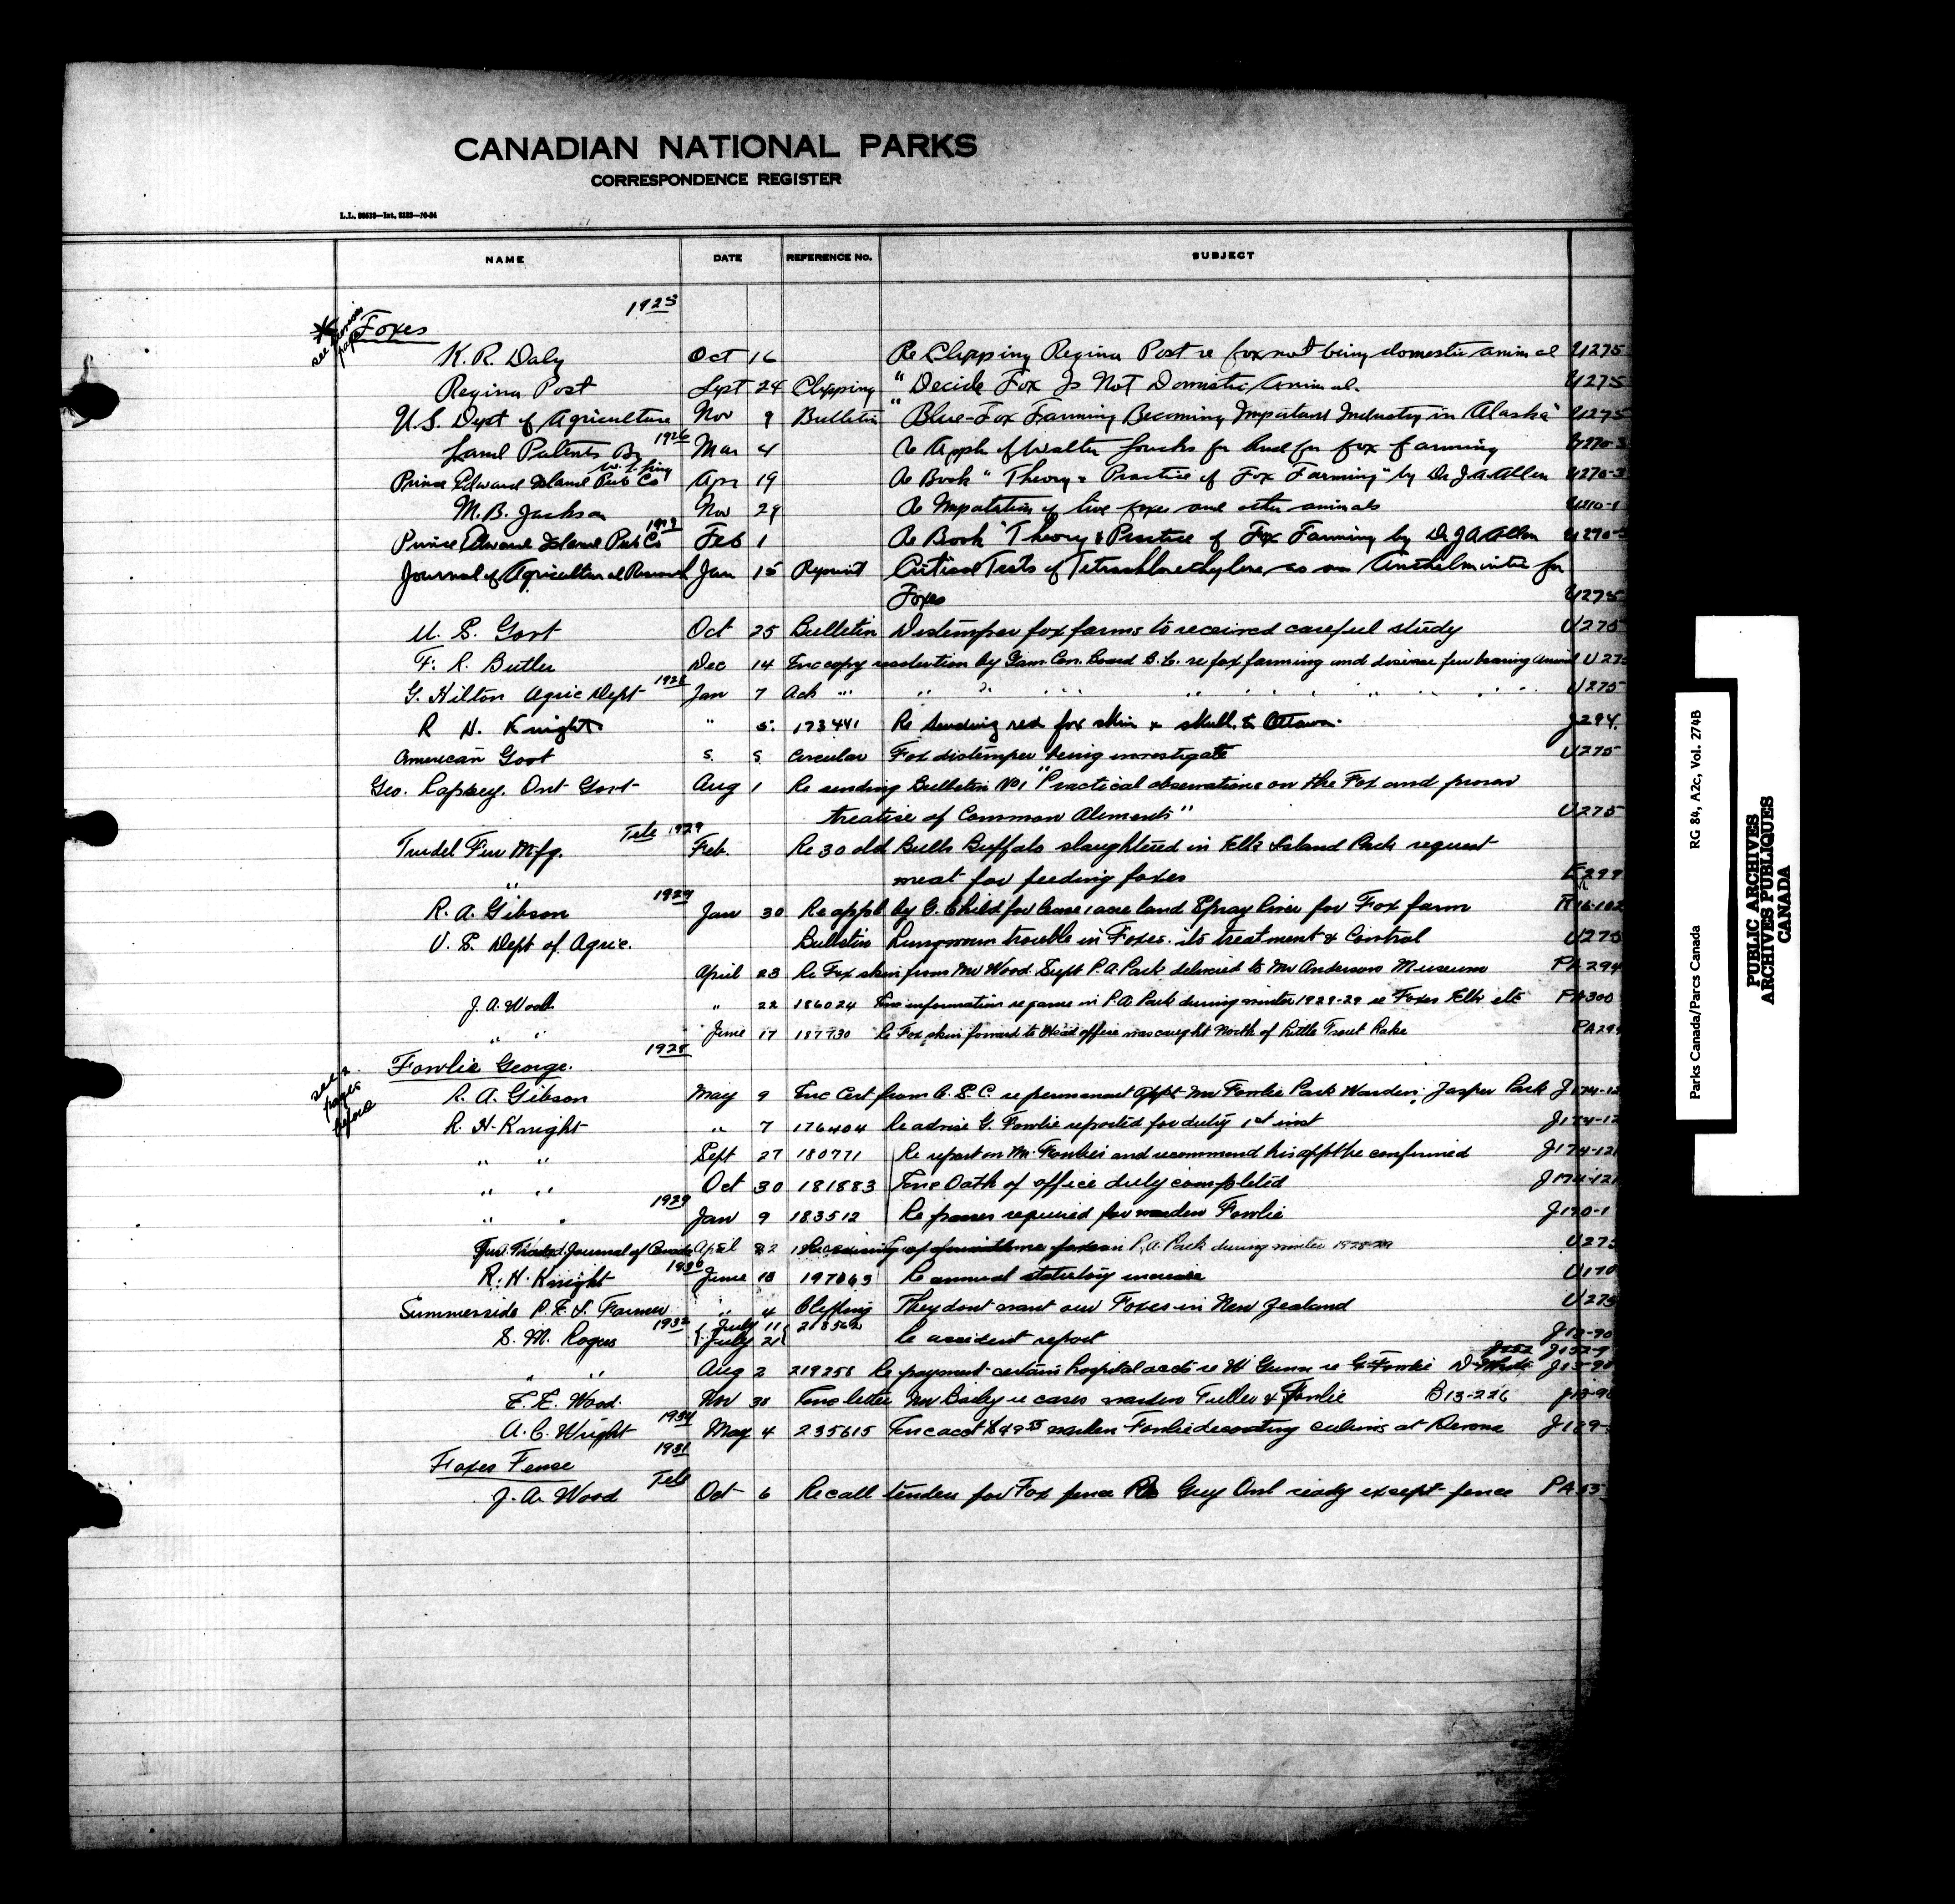 CANADIAN NATIONAL PARKS
CORRESPONDENCE REGISTER
L.L. 86513—Int. 8233—10-24
NAME DATE REFERENCE No. SUBJECT
1925
* see previous page
Foxes
K. R. Daly Oct 16 Re Clipping Regina Post re fox not being domestic animal U275
Regina Post Sept 24 Clipping "Decide Fox Is Not Domestic Animal. U275
U.S. Dept of Agriculture Nov 9 Bulletin "Blue-Fox Farming Becoming Important Industry in Alaska" U275
Land Patents Br 1926 Mar 4 Re Appln of Walter for land for fox farming U270-3
Prince Edward Island Pub Co Apr 19 Re Book "Theory & Practice of Fox Farming" by Dr J.A. Allen U270-3
M. B. Jackson Nov 29 Re Importation of live foxes and other animals U210-1
Prince Edward Island Pub Co Feb 1 Re Book "Theory & Practice of Fox Farming by Dr J A Allen U270-3
Journal of Agricultural Research Jan 15 Reprint Critical Tests of Tetrachlorethylene as an Anthelmintic for
Foxes U275
U. S. Govt Oct 25 Bulletin Distemper fox farms to received careful study U275
F. R. Butler Dec 14 Enc copy resolution by Gam. Con. Board B.C. re fox farming and disease fur bearing animal U275
G. Hilton Agric Dept 1928 Jan 7 Ack " " " " " " " U275
R H. Knight " 5. 173441 Re sending red fox skin & skull to Ottawa. J294.
American Govt S. S. Circular Fox distemper being investigate U275
Geo. Rapsey. Ont Govt Aug 1 Re sending Bulletin No 1 "Practical observations on the Fox and proven
treatise of Common Aliments" U275
Trudel Fur Mfg. Tele 1929 Feb. Re 30 old Bulls Buffalo slaughtered in Elk Island Park request
" meat for feeding foxes E299
R. A. Gibson 1929 Jan 30 Re appl by G. Child for lease 1 acre land Spray River for Fox farm R16-102
U. S. Dept of Agric. Bulletin Lungworm trouble in Foxes. its treatment & Control U275
April 23 Re Fox skin from Mr Wood Supt P.A. Park delivered to Mr Anderson Museum PA294
J. A. Wood " 22 186024 Enc information re game in P.A Park during winter 1928-29 re Foxes Elk etc PA300
" " June 17 187730 Re Fox skin forward to Head office was caught North of Little Trout Lake PA294
see 2 pages before
1928
Fowlie George.
R. A. Gibson May 9 Enc Cert from C. S. C. re permanent appt Mr Fowlie Park Warden; Jasper Park J174-12
R. H. Knight " 7 176404 Re advise G. Fowlie reported for duty 1st inst J174-12
" " Sept 27 180771 Re report on Mr. Fowlies and recommend his appt be confirmed J174-121
" " Oct 30 181883 Enc Oath of office duly completed J174-121
" " 1929 Jan 9 183512 Re passes required for warden Fowlie J170-1
Fur Trade Journal of Canada April 22 foxes in P.A. Park during winter 1928-29 U275
R. H. Knight 1930 June 18 197863 Re annual statutory increase U170
Summerside P. E. I. Farmer " 4 Clipping They dont want our Foxes in New Zealand U275
S. M. Rogers 1932 { July 11 July 21 } 218562 Re accident report J13-90
" " Aug 2 219258 Re payment certain hospital accts re W Gunn re G Fowlie J13-90
E. E. Wood. Nov 30 Enc letter Mr Baily re cases warden Fuller & Fowlie B13-226 J13-90
A. C. Wright 1934 May 4 235615 Enc acct warden Fowlie decorating cabins at Devona J189-
1931
Foxes Fense
J. A. Wood Tele Oct 6 Re call tenders for Fox fence Re Grey Owl ready except fence PA
Parks Canada/Parcs Canada RG 84, A2c, Vol. 2748
PUBLIC ARCHIVES
ARCHIVES PUBLIQUES
CANADA